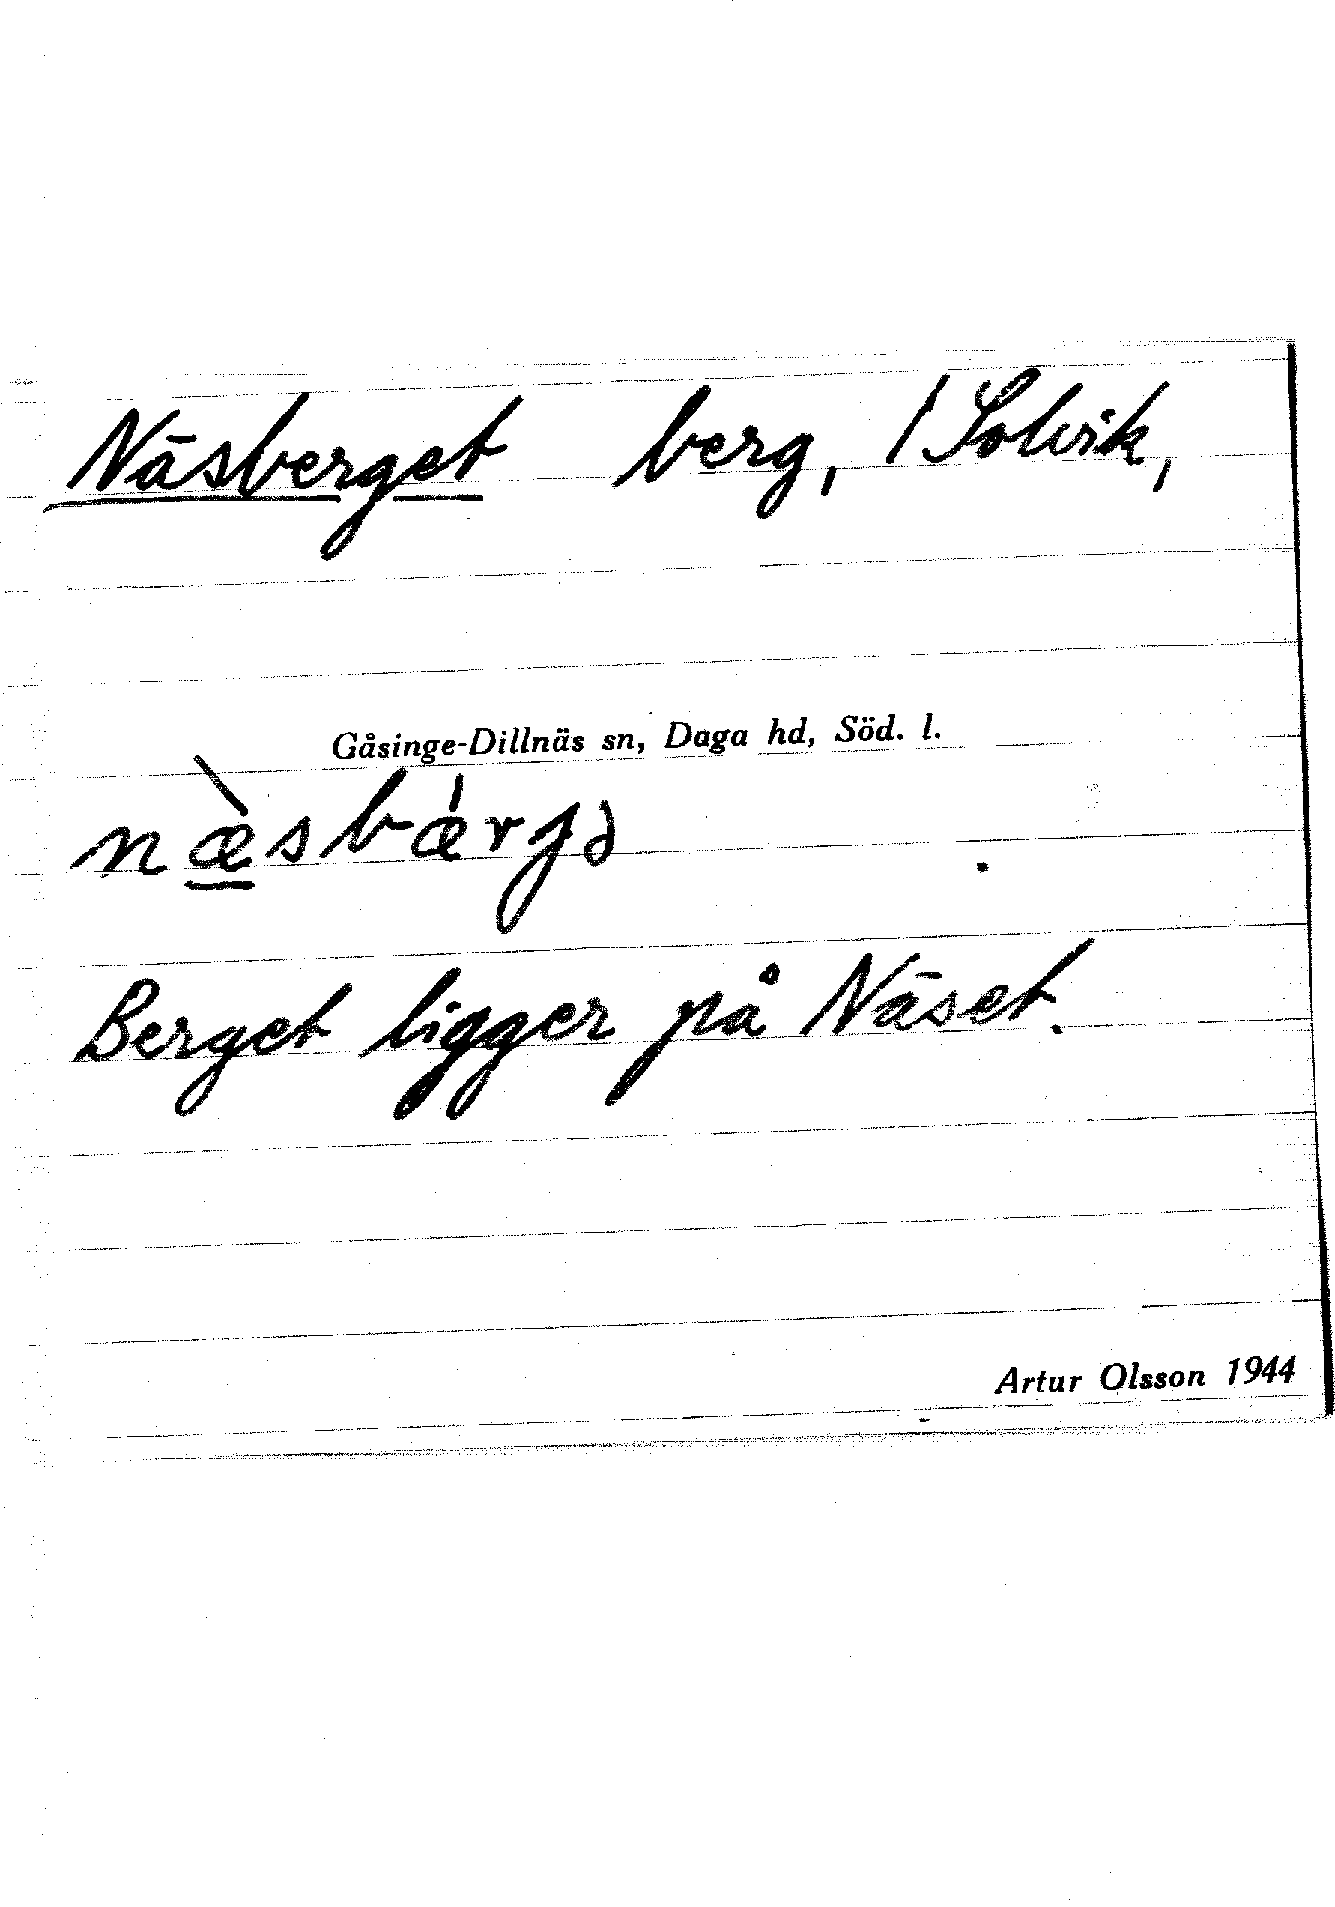 Näsberget berg, / Solvik,
Gåsinge-Dillnäs sn, Daga hd, Söd. l.
næ̀sbǽrjə
Berget ligger på Näset.
Artur Olsson 1944